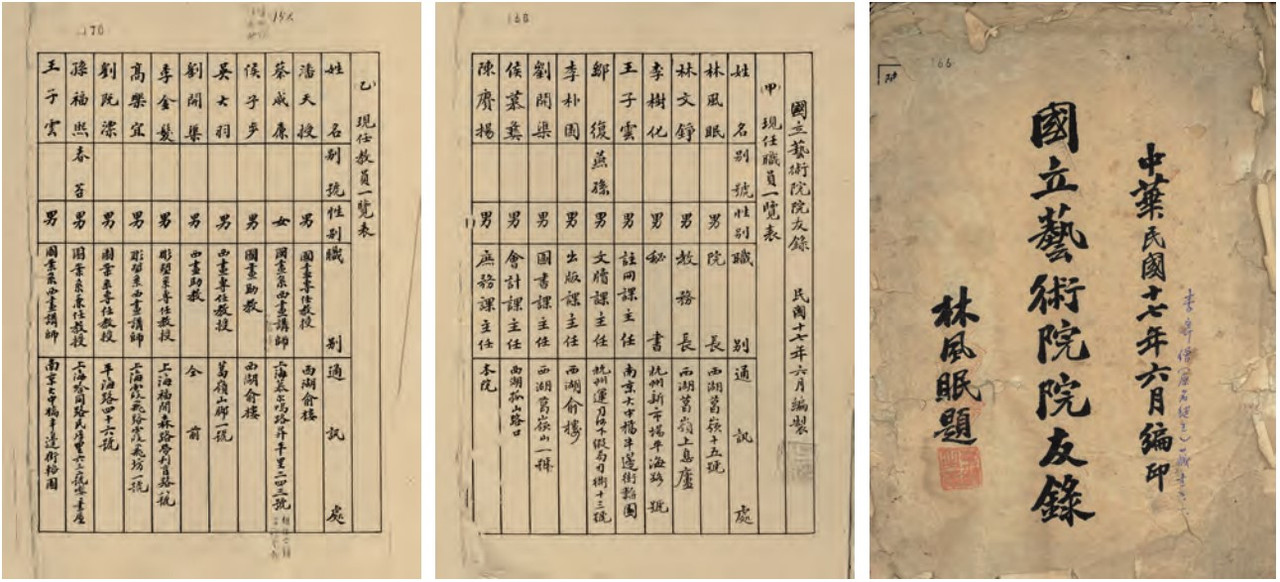 166
中華民國十七年六月編印
國立藝術院院友錄
林風眠題
168
國立藝術院院友錄 民國十七年六月編製
(甲) 現任職員一覽表
姓名 別號 性別 職別 通訊處
林風眠 男 院長 西湖葛嶺十五號
林文錚 男 教務長 西湖葛嶺上息廬
李樹化 男 秘書 杭州新市場平海路 號
王子雲 男 註冊課主任 南京大中橋半邊街韜園
鄔復 燕孫 男 文牘課主任
李朴園 男 出版課主任 西湖俞樓
劉開渠 男 圖書課主任 西湖葛嶺山一號
侯慕彝 男 會計課主任 西湖孤山路口
陳賡揚 男 庶務課主任 本院
170
(乙) 現任教員一覽表
姓名 別號 性別 職別 通訊處
潘天授 男 國畫專任教授 西湖俞樓
蔡威廉 女 西畫講師
侯子步 男 國畫助教 西湖俞樓
吳大羽 男 西畫專任教授 葛嶺山腳一號
劉開渠 男 西畫助教 仝前
李金髮 男 彫塑系專任教授
高樂宜 男 彫塑系西畫講師 上海霞飛路霞飛坊一號
劉既漂 男 圖案系專任教授 平海路四十六號
孫福熙 春苔 男 圖案系兼任教授
王子雲 男 圖案系西畫講師 南京大中橋半邊街韜園